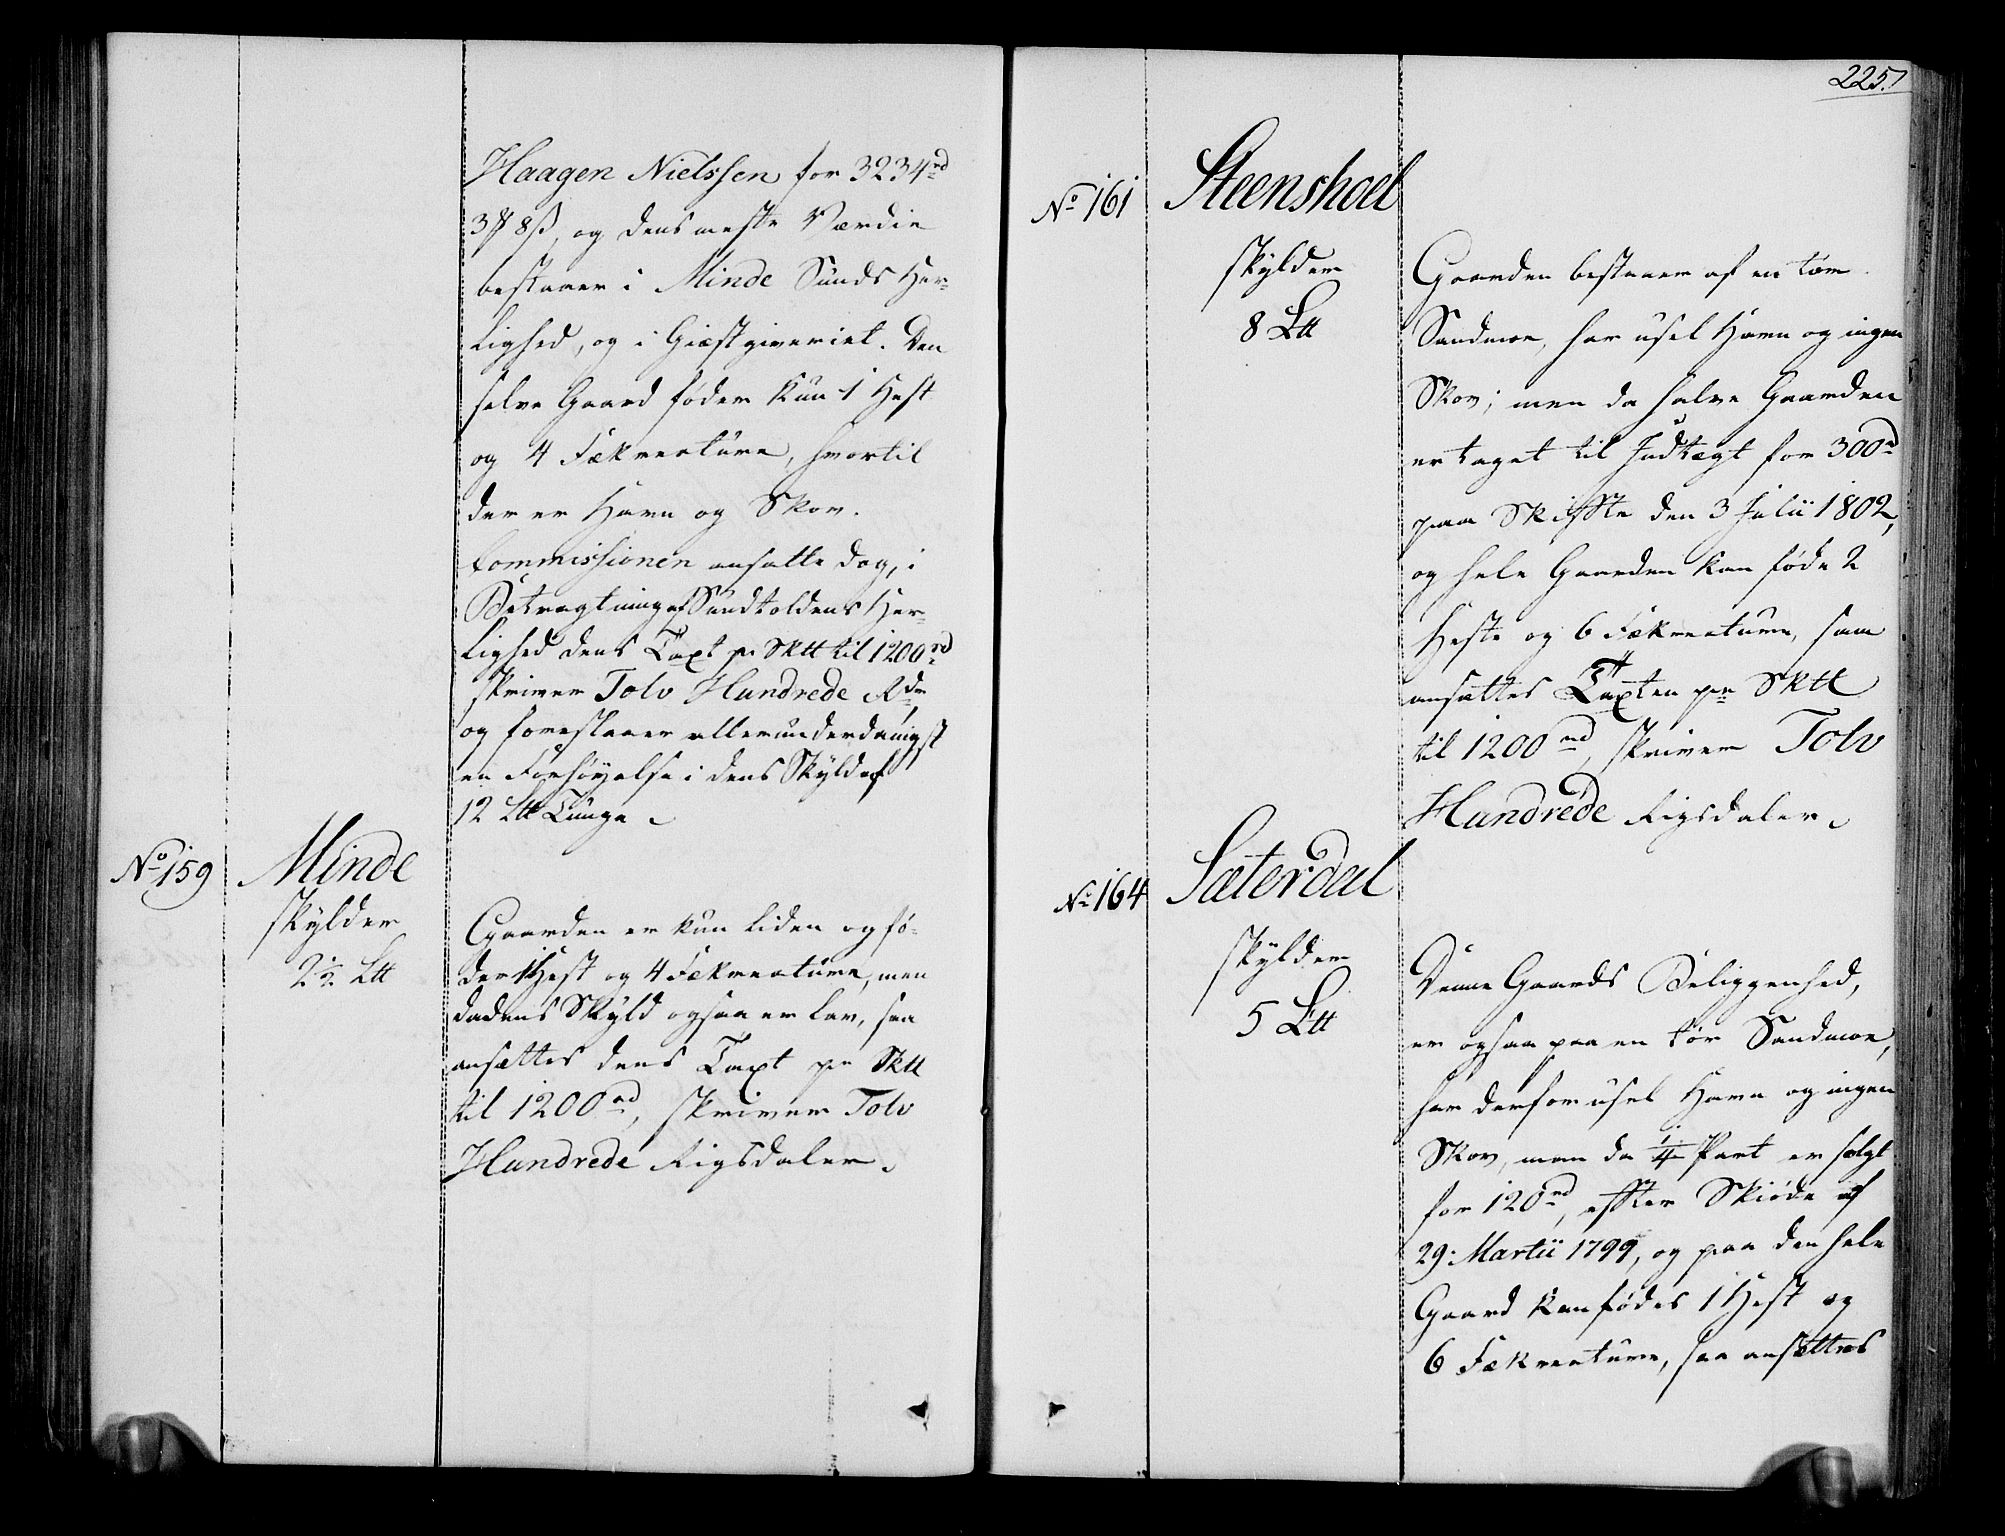 Haagen Nielssen for 3234rd
3 ℔ 8 ß, og dens meste Værdie
bestaaer i Minde Sunds Her-
lighed, og i Giæstgiveriet. Den
selve Gaard føder kun 1 Hest
og 4 Fækreature, hvortil
der er Havn og Skov.
Commissionen ansatte dog, i
Betragtning af Sundtoldens Her-
lighed dens Taxt pr Sktt til 1200rd
skriver Tolv Hundrede Rdr
og foreslaaer allerunderdanigst
en Forhøyelse i dens Skyld af
12 Ltt Tunge
No 159
Minde
skylder
2½ Ltt
Gaarden er kun liden og fø-
der 1 Hest og 4 Fækreature, men
da dens Skyld ogsaa er lav, saa
ansættes dens Taxt pr Sktt
til 1200rd, skriver Tolv
Hundrede Rigsdaler
225.
No 161
Steenshoel
skylder
8 Ltt
Gaarden bestaaer af en tør
Sandmoe, har usel Havn og ingen
Skov; men da halve Gaarden
er taget til Indtægt for 300rd
paa Skifte den 3 Julii 1802,
og hele Gaarden kan føde 2
Heste og 6 Fækreature, saa
ansættes Taxten pr Sktt
til 1200rd, skriver Tolv
Hundrede Rigsdaler
No 164
Sæterdal
skylder
5 Ltt
Denne Gaards Beliggenhed,
er ogsaa paa en tør Sandmoe,
har derfor usel Havn og ingen
Skov, men da ¼ Part er solgt
for 120rd, efter Skiøde af
29. Martii 1799, og paa den hele
Gaard kan fødes 1 Hest og
6 Fækreature, saa ansættes